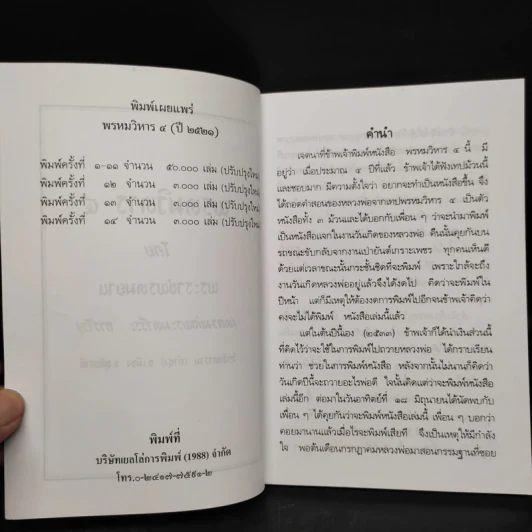 พิมพ์เผยแพร่
พรหมวิหาร ๔ (ปี ๒๕๒๑)
พิมพ์ครั้งที่ ๑-๑๑ จำนวน ๕๐.๐๐๐ เล่ม (ปรับปรุงใหม่
พิมพ์ครั้งที่ ๑๒ จำนวน ๓.๐๐๐ เล่ม (ปรับปรุงใหม่
พิมพ์ครั้งที่ ๑๓ จำนวน ๓.๐๐๐ เล่ม (ปรับปรุงใหม่
พิมพ์ครั้งที่ ๑๔ จำนวน ๓.๐๐๐ เล่ม (ปรับปรุงใหม่
พิมพ์ที่
บริษัทเยลโล่การพิมพ์ (1988) จำกัด
โทร.๐-๒๔๑๗-๗๕๕๑-๒
คำนำ
เจตนาที่ข้าพเจ้าพิมพ์หนังสือ พรหมวิหาร ๔ นี้ มี
อยู่ว่า เมื่อประมาณ ๔ ปีที่แล้ว ข้าพเจ้าได้ฟังเทปม้วนนี้
และชอบมาก มีความตั้งใจว่า อยากจะทำเป็นหนังสือขึ้น จึง
ได้ถอดคำสอนของหลวงพ่อจากเทปพรหมวิหาร ๔ เป็นตัว
หนังสือทั้ง ๓ ม้วนและได้บอกกับเพื่อน ๆ ว่าจะนำมาพิมพ์
เป็นหนังสือแจกในงานวันเกิดของหลวงพ่อ คืนนั้นคุยกันบน
รถขณะขับกลับจากงานเป่ายันต์เกราะเพชร ทุกคนเห็นดี
ด้วยแต่เวลาขณะนั้นกระชั้นชิดที่จะพิมพ์ เพราะใกล้จะถึง
งานวันเกิดหลวงพ่ออยู่แล้วจึงได้งดไป คิดว่าจะพิมพ์ใน
ปีหน้า แต่ก็มีเหตุให้ต้องงดการพิมพ์ไปอีกจนข้าพเจ้าคิดว่า
คงจะไม่ได้พิมพ์ หนังสือเล่มนี้แล้ว
แต่ในต้นปีนี้เอง (๒๕๓๓) ข้าพเจ้าก็ได้นำเงินส่วนนี้
ที่คิดไว้ว่าจะใช้ในการพิมพ์ไปถวายหลวงพ่อ ได้กราบเรียน
ท่านว่า ช่วยในการพิมพ์หนังสือ หลังจากนั้นไม่นานก็คิดว่า
วันเกิดปีนี้จะถวายอะไรพอดี ใจนั้นคิดแต่ว่าจะพิมพ์หนังสือ
เล่มนี้อีก ต่อมาในวันอาทิตย์ที่ ๑๘ มิถุนายนได้นัดพบกับ
เพื่อน ๆ ได้คุยกันว่าจะพิมพ์หนังสือเล่มนี้ เพื่อน ๆ บอกว่า
คอยมานานแล้วเมื่อไรจะพิมพ์เสียที จึงเป็นเหตุให้มีกำลัง
ใจ พอต้นเดือนกรกฎาคมหลวงพ่อมาสอนกรรมฐานที่ซอย